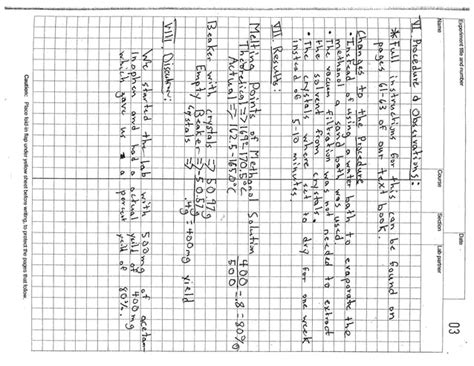 Experiment title and number
Date
03
Name
Course
Section
Lab partner
VI. Procedure & Observations:
*Full instructions for this can be found on
pages 61-63 of our text book.
Changes to the Procedure
• Instead of using a water bath to evaporate the
methanol a sand bath was used.
• The vacuum filtration was not needed to extract
the solvent from crystals.
• The crystals where set to dry for one week
instead of 5-10 minutes.
VII. Results:
Melting Points of Methanol Solution
Theoredical => 169-170.5°C
Actual => 162.5-165.0°C
400
500 = .8 = 80%
Beaker with crystals => 50.97g
Empty Beaker => - 50.57g
Crystals .4g = 400mg yield
VIII.
We started the lab with 500mg of acetam
inophen and had a actual yeild of 400mg
which gave us a percent yeild of 80%.
Caution: Place fold-in flap under yellow sheet before writing, to protect the pages that follow.